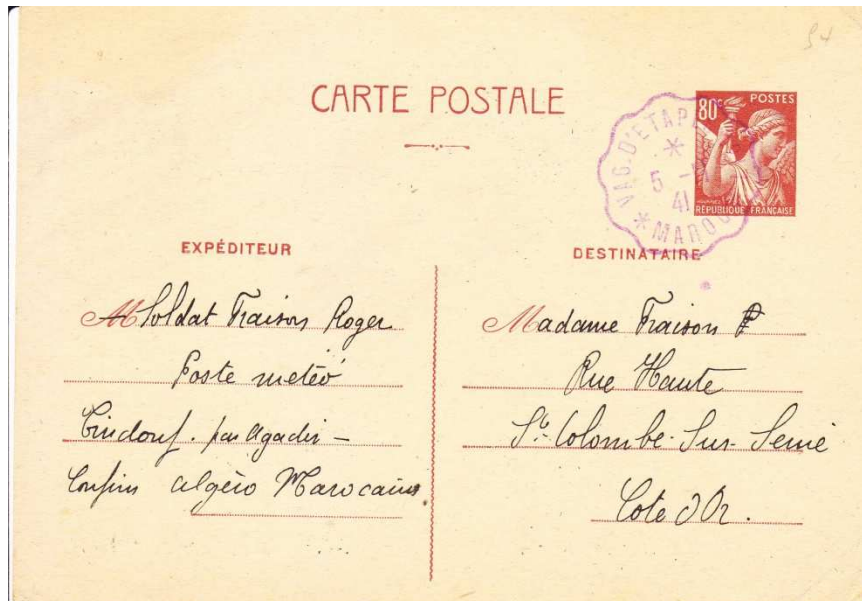 94
CARTE POSTALE
80c POSTES
RÉPUBLIQUE FRANÇAISE
VAG. D'ETAPE
5 -
41
MAROC
EXPÉDITEUR
M Soldat Fraison Roger
Poste météo
Tindouf. par Agadir -
Confins algéro Marocains.
DESTINATAIRE
Madame Fraison P
Rue Haute
Ste Colombe-Sur-Seine
Cote d'Or.